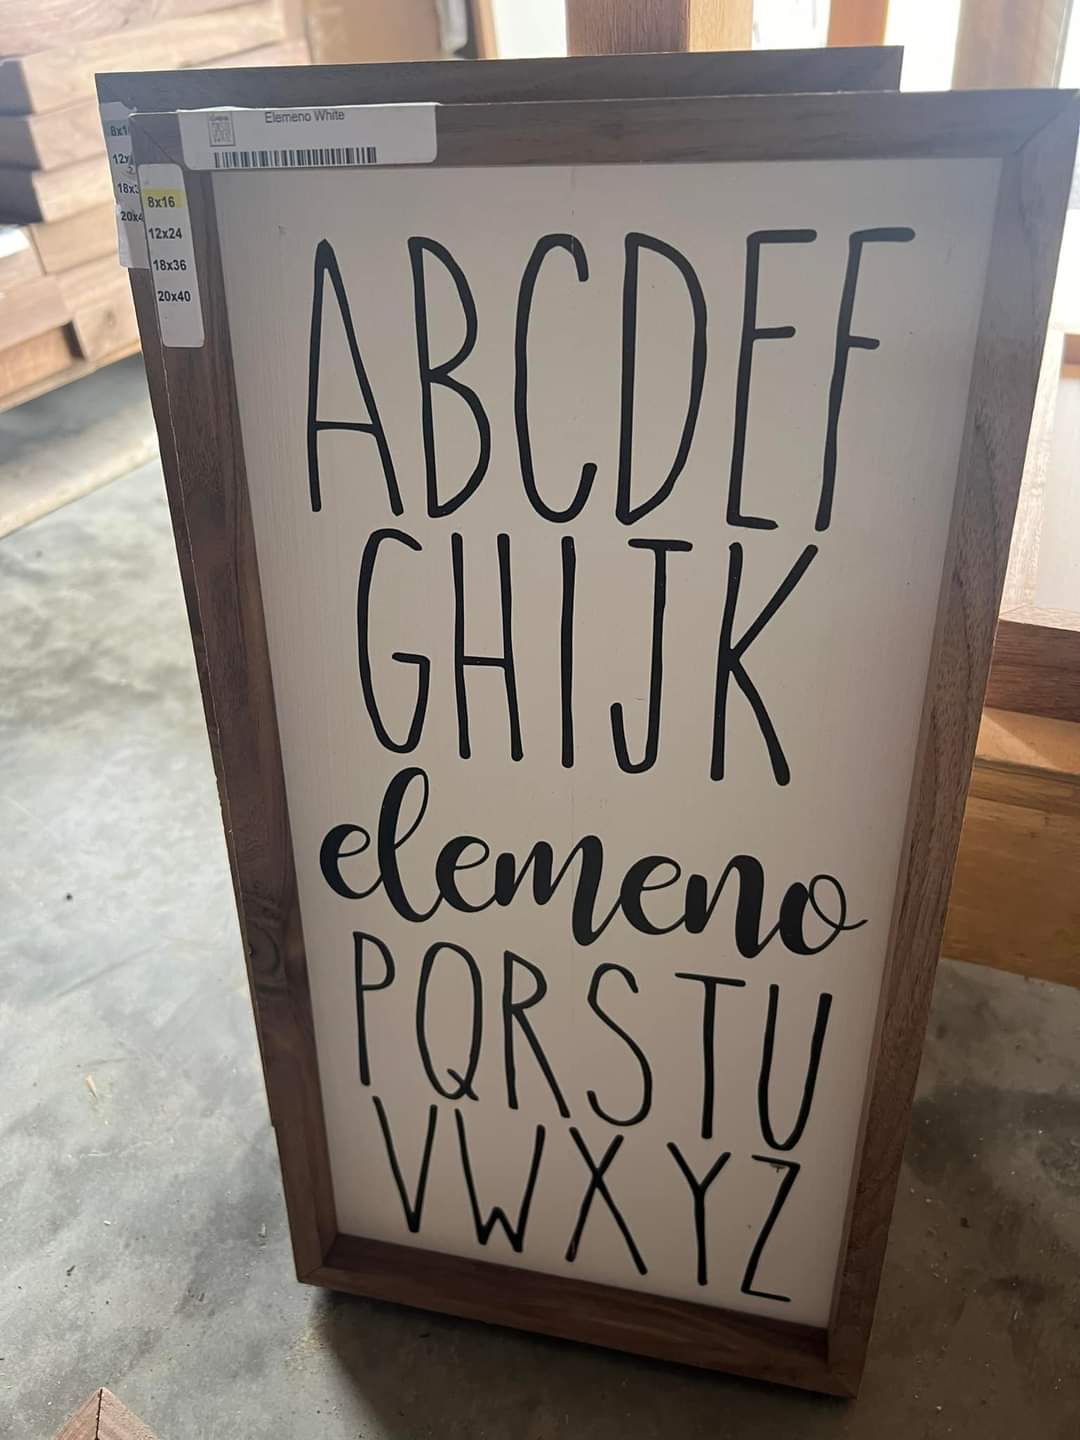 Elemeno White
8x16
12x24
18x36
20x40
ABCDEF
GHIJK
elemeno
PQRSTU
VWXYZ